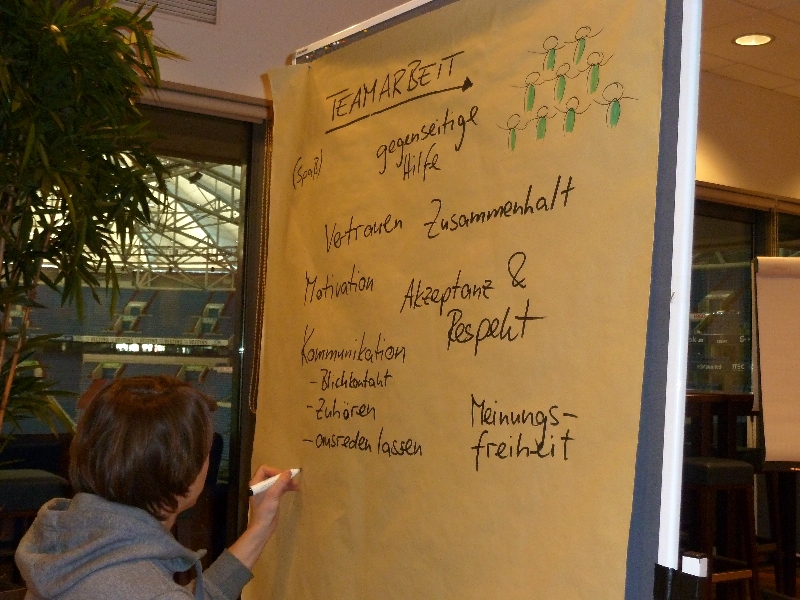 TEAMARBEIT
(Spaß)
gegenseitige
Hilfe
Vertrauen Zusammenhalt
Motivation
Akzeptanz &
Respekt
Kommunikation
- Blickkontakt
- Zuhören
- ausreden lassen
Meinungs-
freiheit